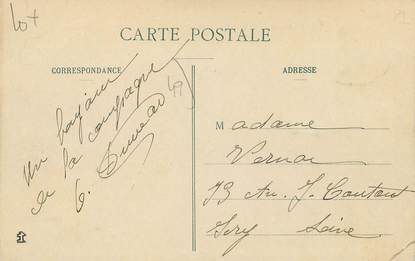 lot
CARTE POSTALE
CORRESPONDANCE
ADRESSE
Un bonjour
de la campagne
G.
49
Madame
Vernon
73 Av. J. Coutant
Ivry Seine